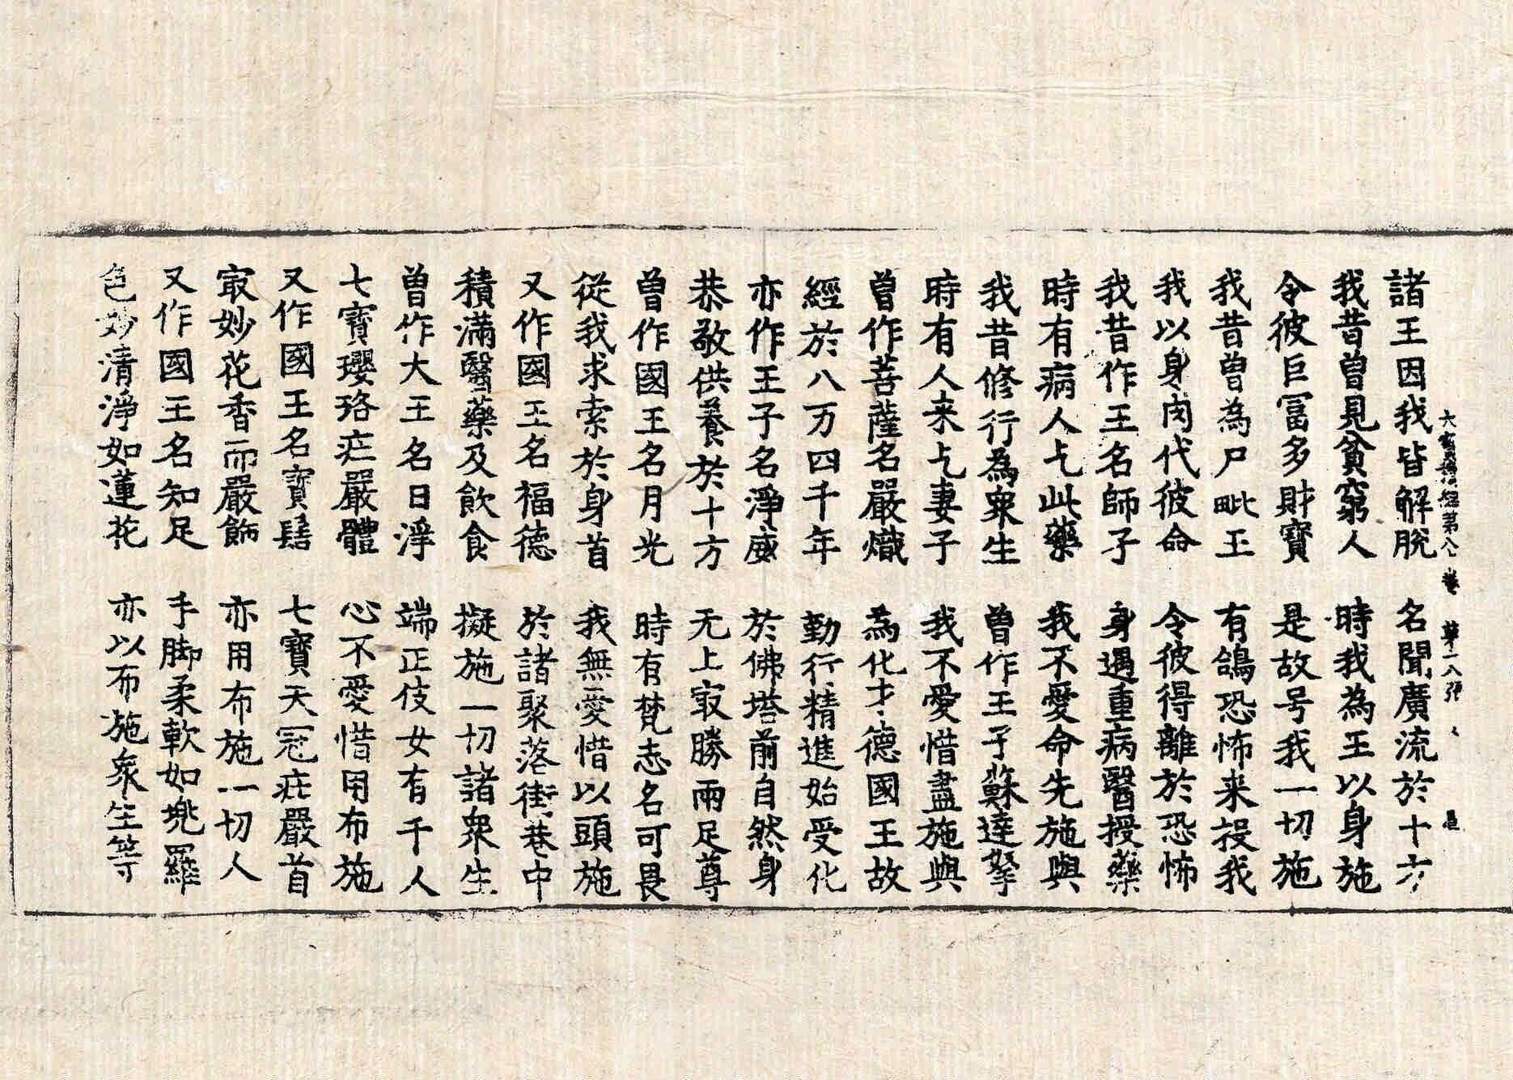 大寳積經第八 卷 第一八張
諸王因我皆解脫 名聞廣流於十方
我昔曾見貧窮人 時我為王以身施
令彼巨冨多財寳 是故号我一切施
我昔曾為尸毗王 有鴿恐怖来投我
我以身肉代彼命 令彼得離於恐怖
我昔作王名師子 身遇重病醫授藥
時有病人乞此藥 我不愛命先施與
我昔修行為衆生 曾作王子蘇達拏
時有人来乞妻子 我不愛惜盡施與
曾作菩薩名嚴熾 為化才德國王故
經於八万四千年 勤行精進始受化
亦作王子名淨威 於佛塔前自然身
恭敬供養於十方 无上冣勝兩足尊
曾作國王名月光 時有梵志名可畏
從我求索於身首 我無愛惜以頭施
又作國王名福德 於諸聚落街巷中
積滿醫藥及飲食 擬施一切諸衆生
曽作大王名日淨 端正伎女有千人
七寳瓔珞庄嚴體 心不愛惜用布施
又作國王名寳髻 七寳天冠庄嚴首
冣妙花香而嚴飾 亦用布施一切人
又作國王名知足 手脚柔軟如兠羅
色妙清淨如蓮花 亦以布施衆生等